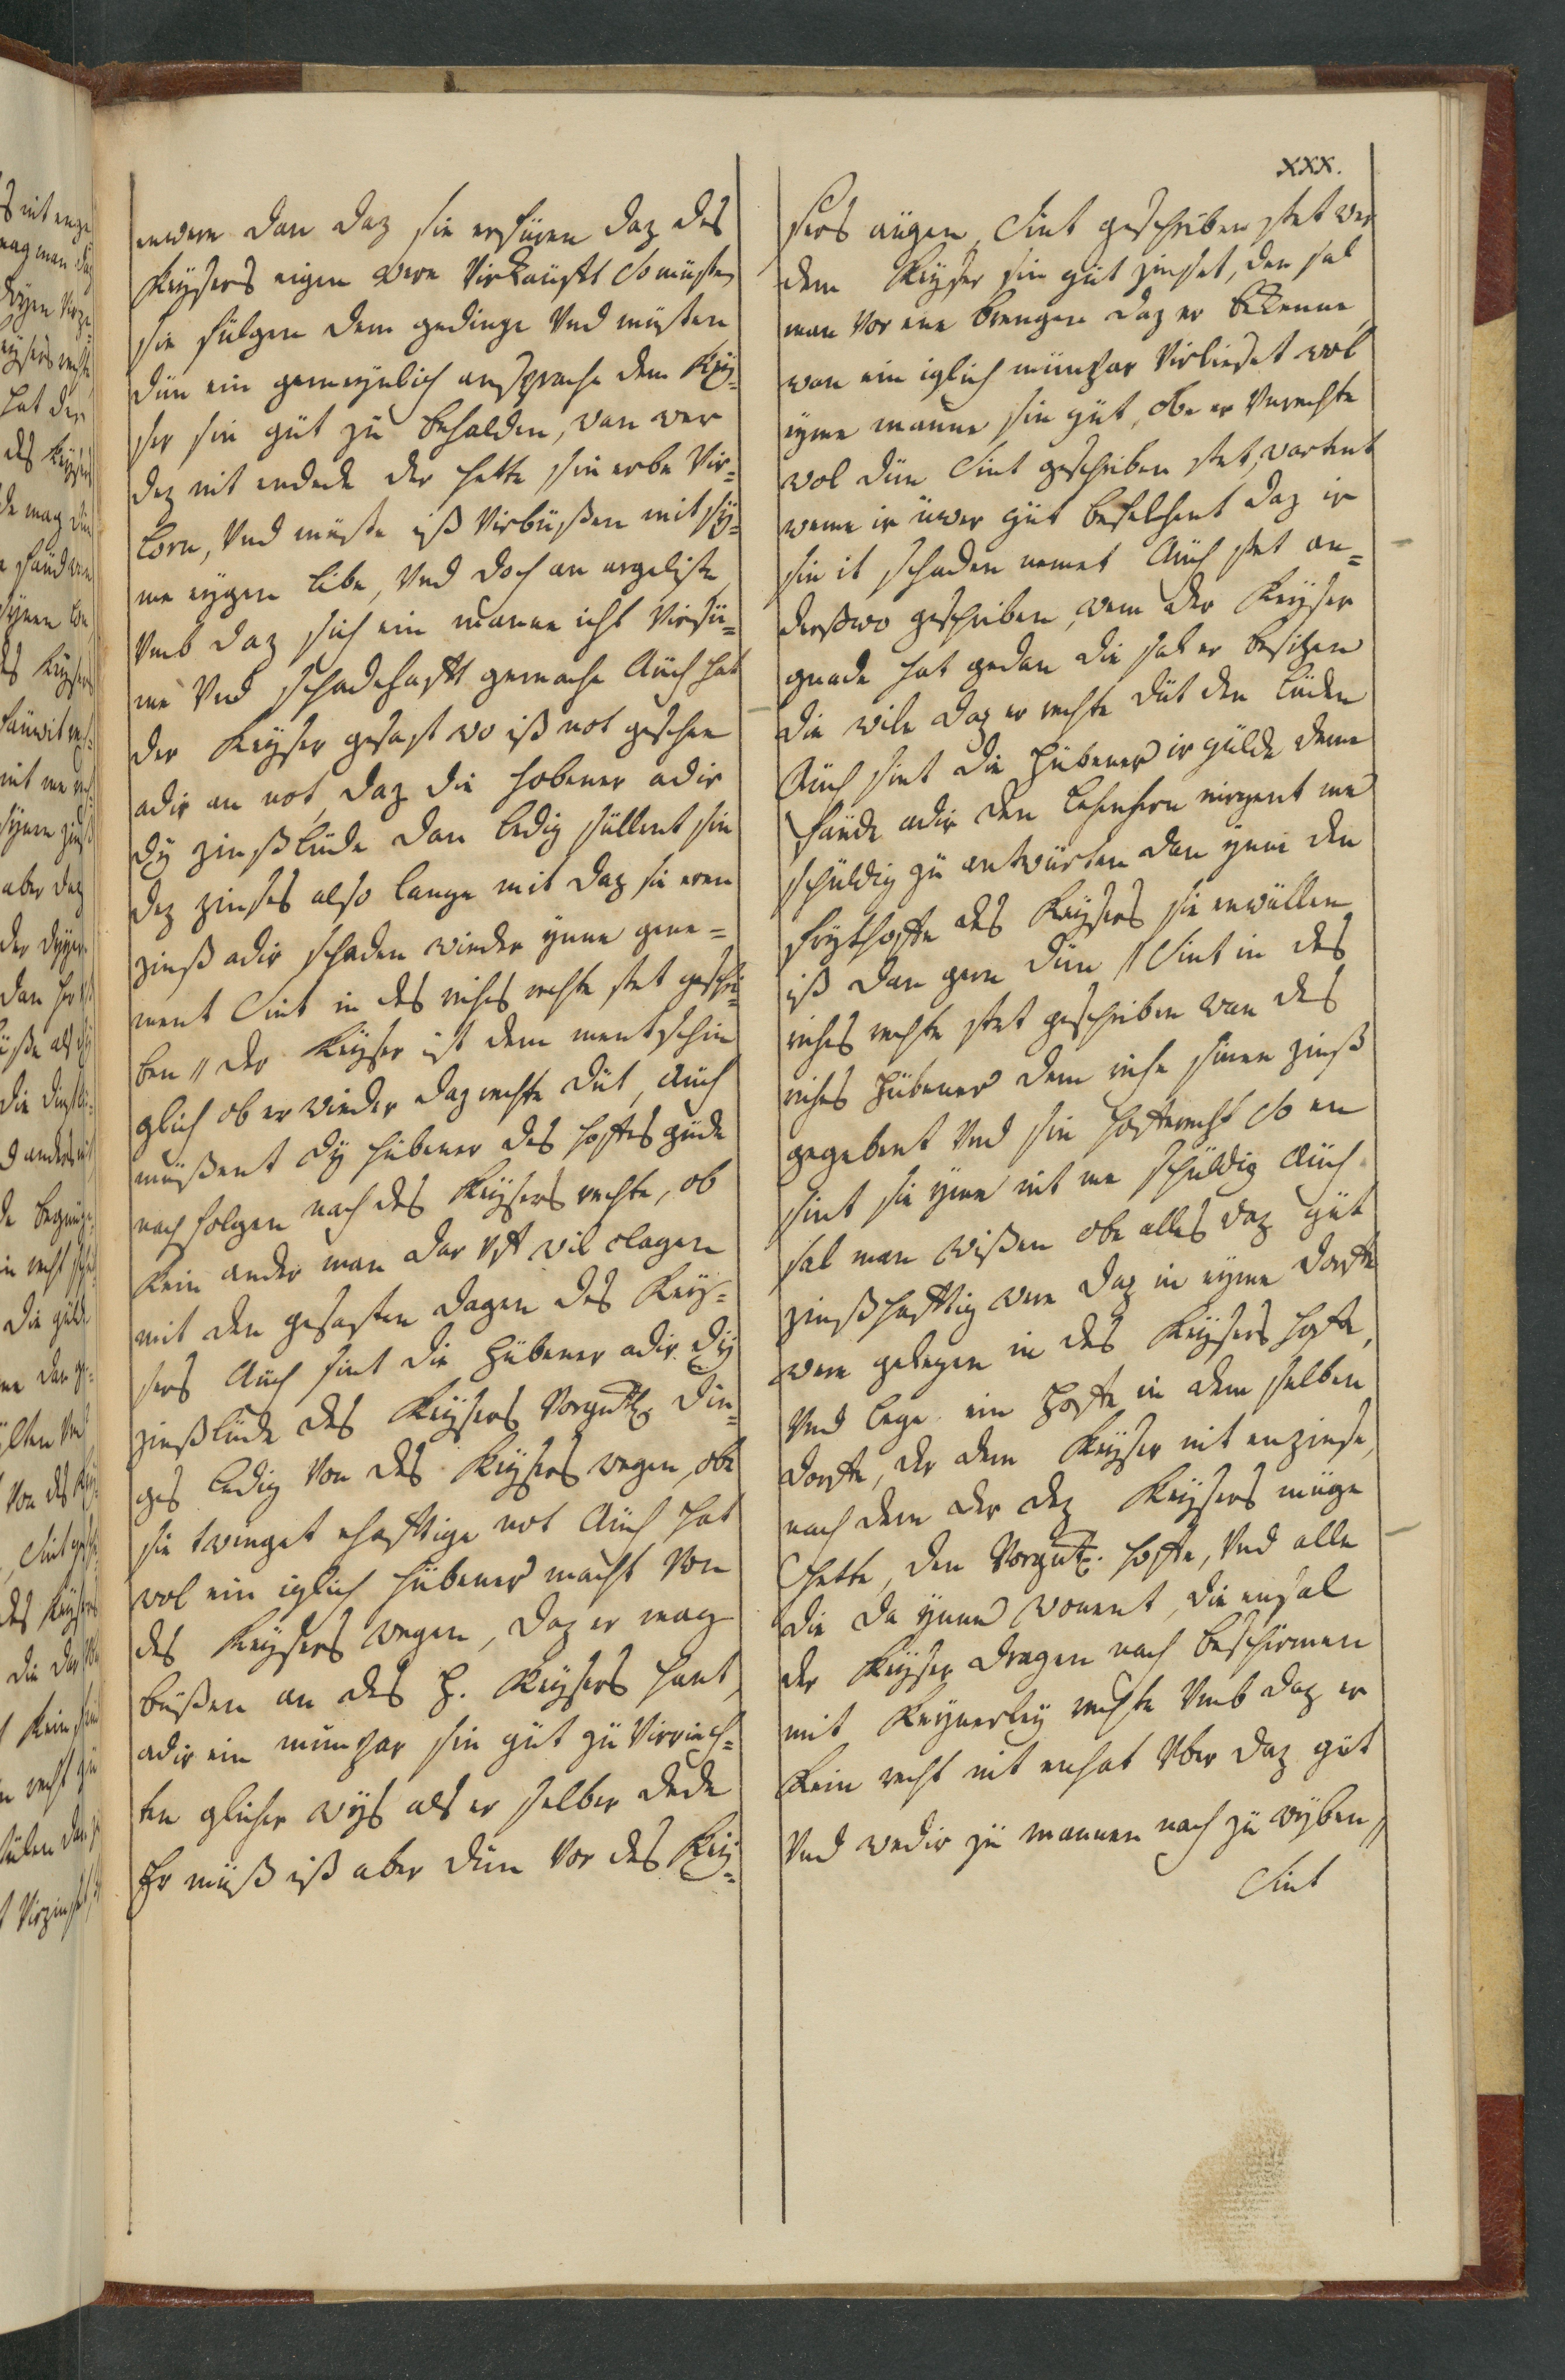 xxx.
enwere dan daz sie erfüren daz des
Keysers eigen were Virkaüfft So müsten
sie fülgen dem gedinge Vnd müsten
dün ein gemeynlich ansprache dem Key=
ser sin güt zü behalden, wan wer
dez nit endede der hette sin erbe Vir=
lorn, Vnd müste iß Virbüßen mit sy=
me eygen libe, Vnd doch an argeliste
Vmb daz sich ein manne icht Virsü=
me Vnd schadehafft gemache Aüch hat
der Keyser gesast wo iß not geschee
adir an not, daz die hobener adir
dy zinßlüde dan ledig süllent sin
dez zinses also lange mit daz sie eren
zinß adir schaden wieder ynne gene=
ment Sint in des riches rechte stet geschri=
ben // der Keyser ist dem mentschin
glich ob er wieder daz rechte düt, aüch
müßent dy hübener des hoffes güde
nach folgen nach des Keysers rechte, ob
kein ander man dar Vff wil clagen
mit den gesasten dagen des Key=
sers Aüch sint die hübener adir dy
zinßlüde des Keysers Vorgntz. din=
ges ledig Von des Keysers wegen, obe
sie twinget ehafftige not Aüch hat
wol ein iglich hübener macht Von
des Keysers wegen, daz er mag
büßen an des H. Keysers hant,
adir ein münpar sin güt zü Virrich=
ten glicher wys als er selber dede
Er müß iß aber dün Vor des Key=
sers aügen, Sint geschriben stet wer
dem Keyser sin güt zinset, den sal
man Vor ene brengen daz er bekenne,
wan ein iglich münpar Virlieset wol
eyme manne sin güt, obe er Vnrechte
wol dün Sint geschriben stet, wartent
weme ir üwer güt befelhent daz ir
sin it schaden nemet Aüch stet an=
derßwo geschriben, wem der Keyser
gnade hat gedan die sal er besitzen
die wile daz er rechte düt den lüden
Aüch sint die hübener ir gülde deme
faüde adir den lehenhern nirgent me
schüldig zü antwürten dan ynne den
fryhoffe des Keysers sie enwüllen
iß dan gern dün // Sint in des
riches rechte stet geschriben wan des
riches hübener dem riche sinen zinß
gegebent Vnd sin hofferecht So en
sint sie yme nit me schüldig Aüch
sal man wißen obe alles daz güt
zinßhafftig were daz in eyme dorffe
were gelegen in des Keysers hoffe,
Vnd lege ein hoffe in dem selben
dorffe, der dem Keyser nit enzinse,
nach dem der dez Keysers müge
hette, den Vorgntz. hoffe, Vnd alle
die da ynne wonent, die ensal
der Keyser dragen nach beschirmen
mit keynerley rechte Vmb daz er
kein recht nit enhat Vber daz güt
Vnd wedir zü mannen nach zü wyben //
Sint